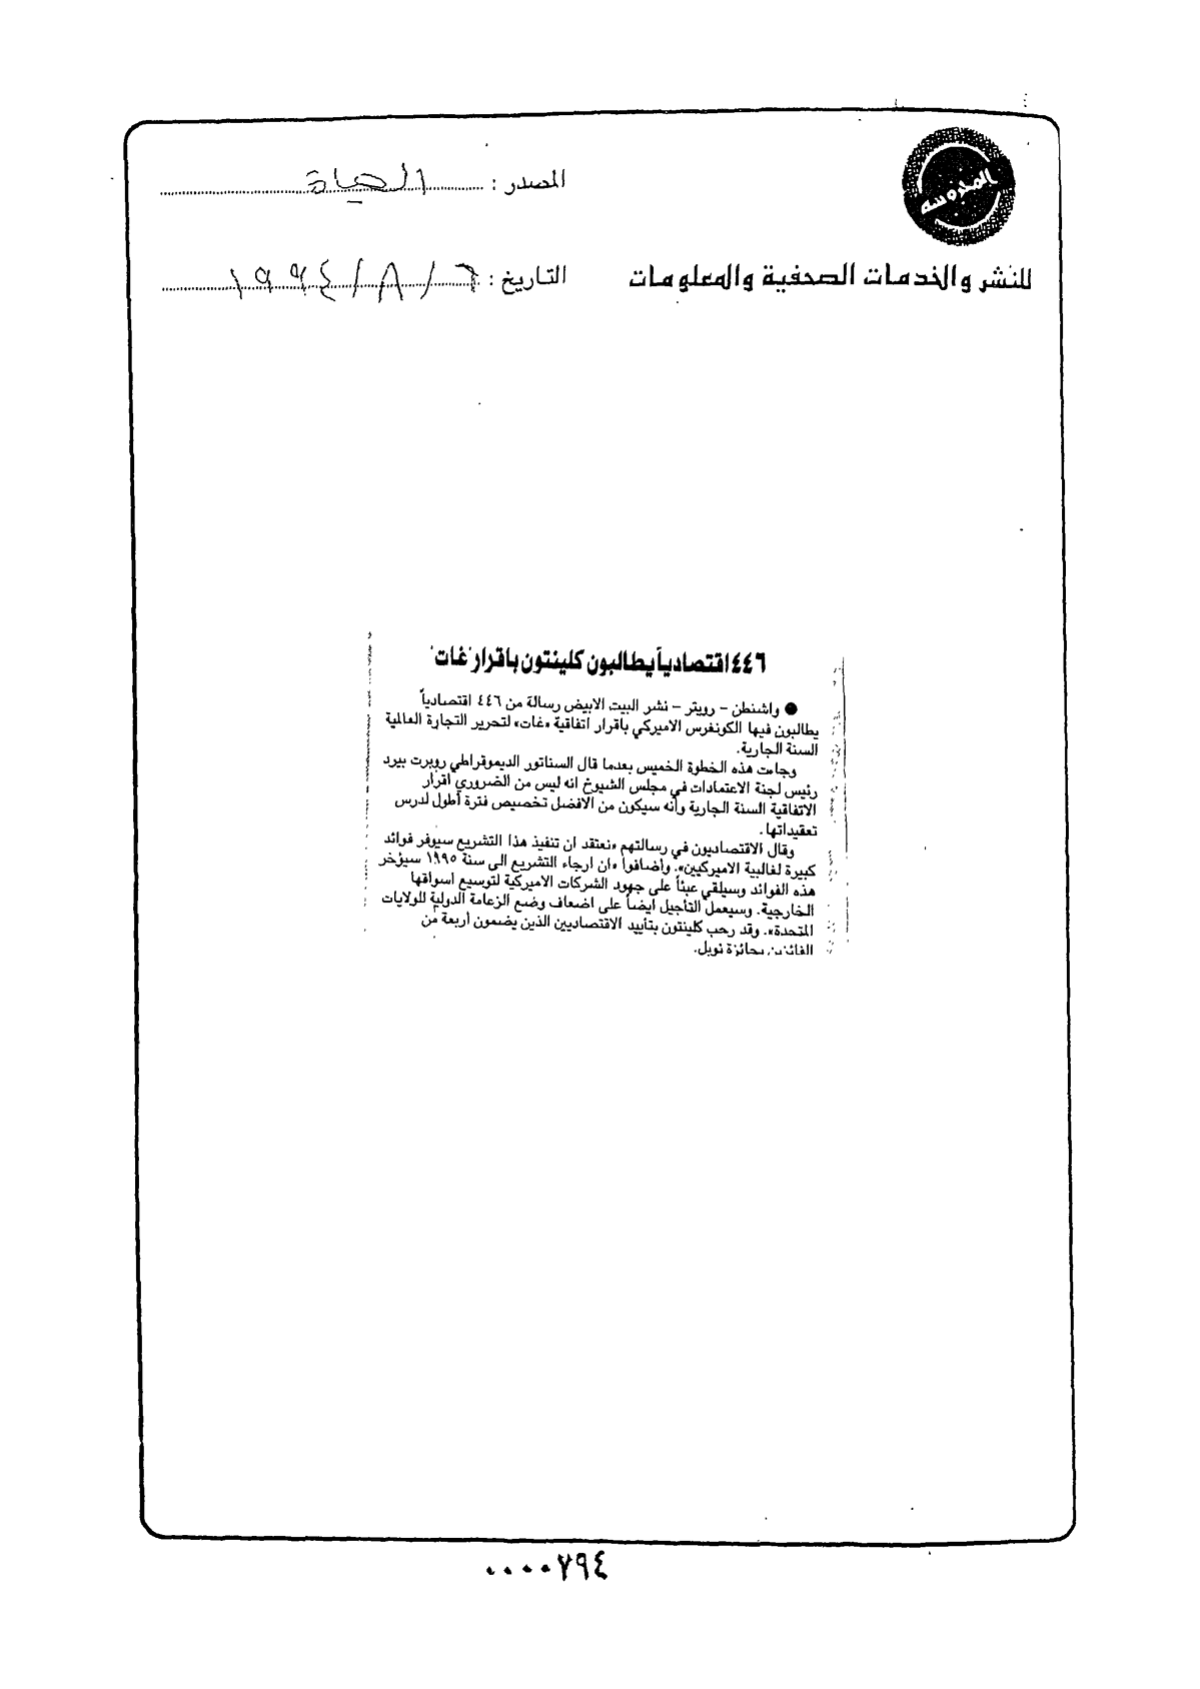 المحروسة
للنشر والخدمات الصحفية والمعلومات
المصدر : الحياة
التاريخ : ٦ / ٨ / ١٩٩٤
٤٤٦ اقتصادياً يطالبون كلينتون باقرار "غات"
● واشنطن - رويتر - نشر البيت الابيض رسالة من ٤٤٦ اقتصادياً
يطالبون فيها الكونغرس الاميركي باقرار اتفاقية «غات» لتحرير التجارة العالمية
السنة الجارية.
وجاءت هذه الخطوة الخميس بعدما قال السناتور الديموقراطي روبرت بيرد
رئيس لجنة الاعتمادات في مجلس الشيوخ انه ليس من الضروري اقرار
الاتفاقية السنة الجارية وأنه سيكون من الافضل تخصيص فترة أطول لدرس
تعقيداتها.
وقال الاقتصاديون في رسالتهم «نعتقد ان تنفيذ هذا التشريع سيوفر فوائد
كبيرة لغالبية الاميركيين». وأضافوا «ان ارجاء التشريع الى سنة ١٩٩٥ سيؤخر
هذه الفوائد وسيلقي عبئاً على جهود الشركات الاميركية لتوسيع اسواقها
الخارجية. وسيعمل التأجيل ايضاً على اضعاف وضع الزعامة الدولية للولايات
المتحدة». وقد رحب كلينتون بتأييد الاقتصاديين الذين يضمون أربعة من
الفائزين بجائزة نوبل.
٠٠٠٠٧٩٤